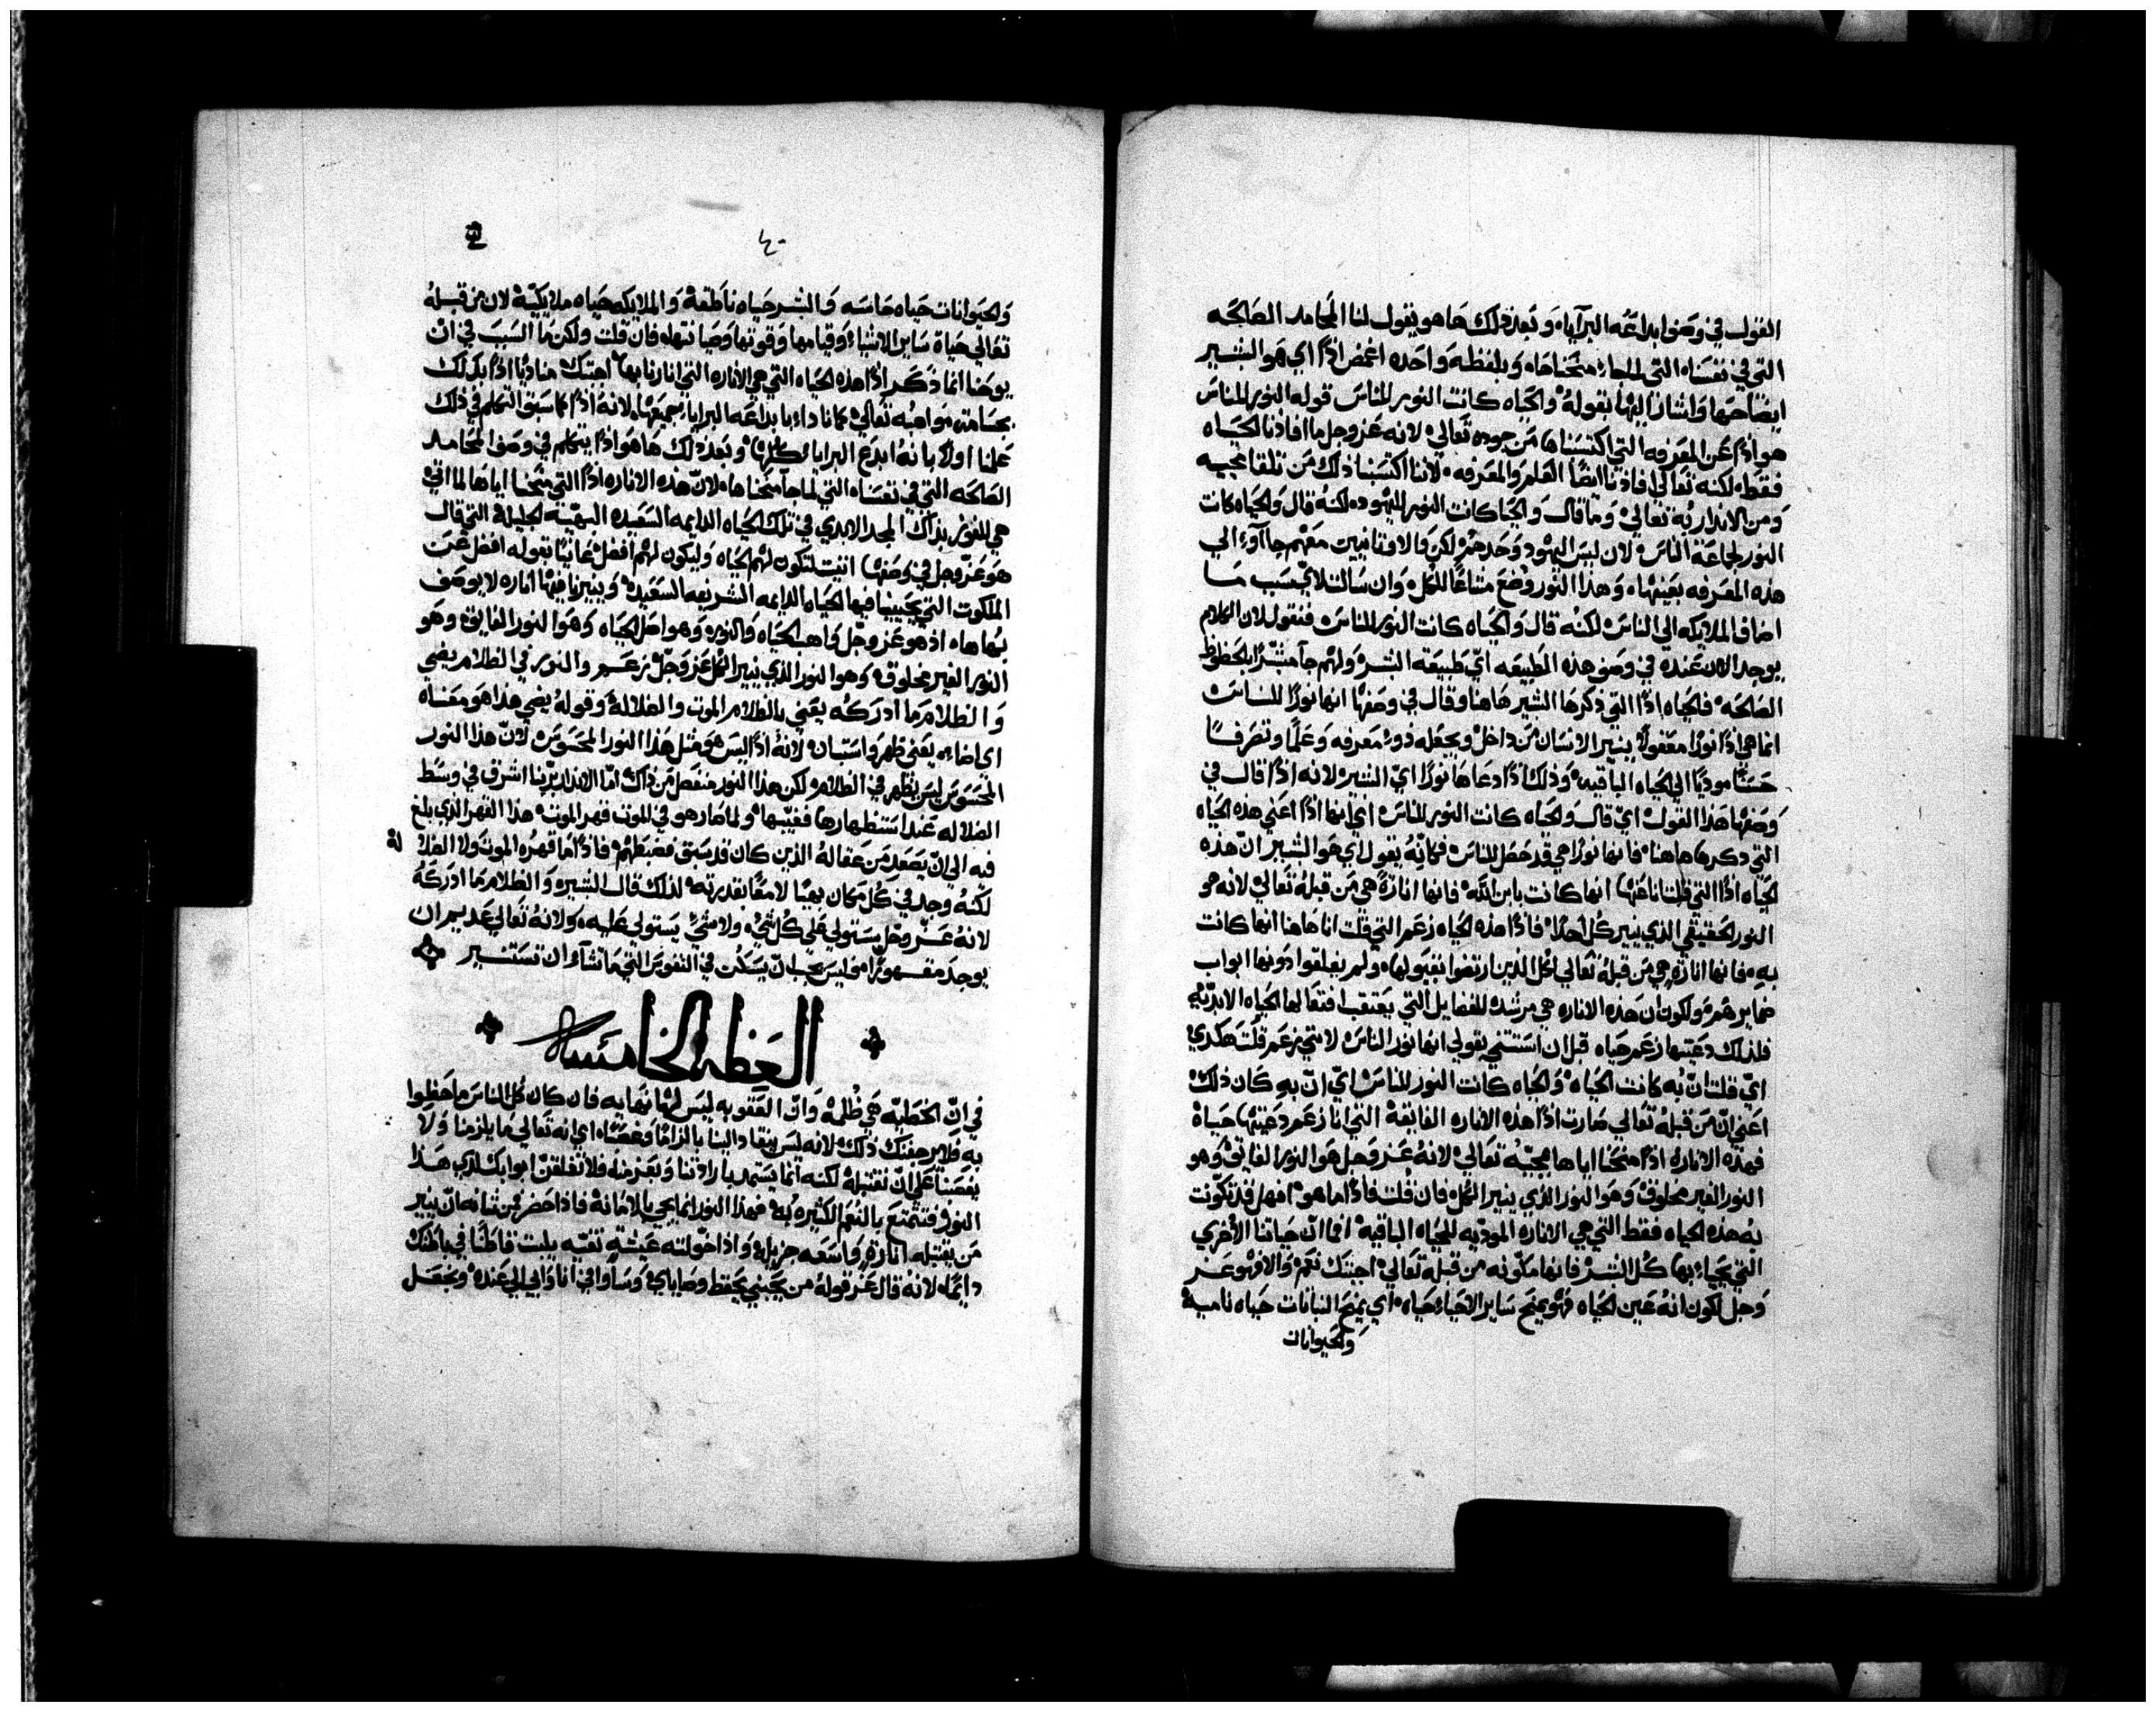 القول في وصف ابداعه البرايا، وبعد ذلك هاهو يقول لنا المحامد الصالحه
التي في نفساه التي لما جاء منحناها، وبلفظه واحده اغمض اذًا اي هو البشير
ايضًا حبها واشار اليها بقوله والحياه كانت النور للناس قوله النور للناس
هو اذًا عن المعرفه التي اكتسبناها من جوده تعالي لانه عز وجل ما افادنا الحياه
فقط، لكنه تعالي افادنا ايضًا العلم والمعرفه، لاننا اكتسبنا ذلك من تلقا مجيه
ومن الانذار به تعالي، وما قال والحيا كانت النور لليهود، لكنه قال والحياه كانت
النور لجماعة الناس لان ليس اليهود وحدهم لكن والاوثانيين معهم جآؤا الي
هذه المعرفه بعينها، وهذا النور وضع مشاعًا للكل، وان سالت لاي سبب ما
اضاف الملايكه الي الناس لكنه قال والحياه كانت النور للناس، فنقول لان الكلام
يوجد الان عنده في وصف هذه الطبيعه اي طبيعة البشر، ولهم جآ مبشرًا بالحظوظ
الصالحه، فالحياه اذًا التي ذكرها البشير هاهنا وقال في وصفها انها نورًا للناس
انما هي اذًا نورًا معقولًا ينير الانسان من داخل ويجعله ذو معرفه وعلمًا وتصرفًا
حسنًا موديًا الي الحياه الباقيه، وذلك اذًا دعاها نورًا اي البشير لانه اذًا قال في
وصفها هذا القول اي قال والحياه كانت النور للناس اي انها اذًا اعني هذه الحياه
التي ذكرها هاهنا، فانها نورًا هي قد حصل للناس فكانه يقول اي هو البشير ان هذه
الحياه اذًا التي قلنا عنها انها كانت بابن الله، فانها انارةً هي من قبله تعالي لانه هو
النور الحقيقي الذي ينير كل احدًا، فاذًا هذه الحياه زعم التي قلت انا هاهنا انها كانت
به، فانها انارةٍ هي من قبله تعالي لكل الذين ارتضوا بقبولها، ولم يغلقوا دونها ابواب
ضمايرهم، ولكون ان هذه الاناره هي مرشده للفضايل التي يعتقب افتعالها الحياه الابديه
فلذلك دعيتها زعم حياه قبل ان استثني بقولي انها نور الناس لانني زعم قلت هكذي
اي قلت ان به كانت الحياه، والحياه كانت النور للناس اي ان به كان ذلك
اعني ان من قبله تعالي صارت اذًا هذه الاناره الفايقة التي انا زعم دعيتها حياة
فهذه الانارة اذًا منحنا اياها بمجيه تعالي لانه عز وجل هو النور الفايق وهو
النور الغير مخلوق وهو النور الذي ينير الكل، فان قلت فاذًا ما هو افهل قد تكونت
به هذه الحياه فقط التي هي الاناره الموديه للحياه الباقيه، اما ان حياتنا الاخري
التي يحيا بها كل البشر فانها مكونه من قبله تعالي، اجبتك نعم، والا فهو عز
وجل لكون انه عين الحياه فهو يمنح ساير الاحياء حياه، اي يمنح النباتات حياه ناميه
والحيوانات
٤٠
والحيوانات حياه حاسه والبشر حياه ناطقة والملايكه حياه ملايكيه لان من قبله
تعالي حياة ساير الاشياء وقيامها وقوتها وصيانتها، فان قلت ولكن ما السبب في ان
يوحنا انما ذكر اذًا هذه الحياه التي هي الاناره التي انارنا بها، اجبتك مناديًا اذًا بذلك
بجسامة مواهبه تعالي، كما نادا بابداعه البرايا جميعها، لانه اذًا كما سبق التكلم في ذلك
علمنا اولًا بانه ابدع البرايا كلها، وبعد ذلك هاهو اذًا يتكلم في وصف المحامد
الصالحه التي في نفساه التي لما جآ منحناها، لان هذه الاناره اذًا التي منحنا اياها لما اتي
هي للفوز بذاك المجد الابدي في تلك الحياه الدايمه السعيده البهيه الجليلة التي قال
هو عز وجل في وصفها اتيت لتكون لهم الحياه وليكون لهم افضل عانيًا بقوله افضل عن
الملكوت التي يحيينا فيها الحياه الدايمه الشريفه السعيده، وينيرنا فيها اناره لا يوصف
بهاها، اذ هو عز وجل واهب الحياه والنور، وهو اصل الحياه وهو النور الفايق، وهو
النور الغير مخلوق، وهو النور الذي ينير الكل عز وجل زعم والنور في الظلام يضي
والظلام ما ادركه يعني بالظلام الموت والضلالة، وقوله يضي هذا هو معناه
اي اضاء، يعني ظهر واستبان، لانه اذًا ليس هو مثل هذا النور المحسوس، لان هذا النور
المحسوس ليس يظهر في الظلام، لكن هذا النور منفصل من ذاك، اما الانذار بربنا اشرق في وسط
الضلاله عند استظهارها فغيبها، ولما صار هو في الموت قهر الموت، هذا القهر الذي بلغ
فيه الي ان يصعد من عقاله الذين كان قد سبق فضبطهم، فاذًا ما قهره الموت ولا الضلا له
لكنه وجد في كل مكان بهيًا لامعًا بقدرته، لذلك قال البشير، والظلام ما ادركه
لانه عز وجل يستولي علي كل شي، ولا شي يستولي عليه، ولانه تعالي عديم ان
يوجد مقهورًا، وليس يجب ان يسكن في النفوس التي ما تشآء ان تستنير
العظه الخامسه
في ان الخطيه هي ظلمة وان العقوبه ليس لها نهايه فان كان كل الناس ما حظوا
به فلا يرجفنك ذلك، لانه ليس ينقاد الينا بالزامًا وغصبًا، اي انه تعالي ما يلزمنا ولا
يغصبنا علي ان نقتبله، لكنه انما يستمد بارادتنا وبعزمنا، فلا تغلقن ابوابك لذي هذا
النور فتتمتع بالنعم الكثيره به، فهذا النور انما يجي بالامانة، فاذا حضر فمن شانه ان ينير
من يقتبله انارةٍ واسعه جزيلة، واذا خولته عيشةٍ نقيه يلبث قاطنًا في باطنك
دايمًا، لانه قال عز قوله من يحبني يحفظ وصاياي، وساوافي انا وابي الي عنده، ونجعل